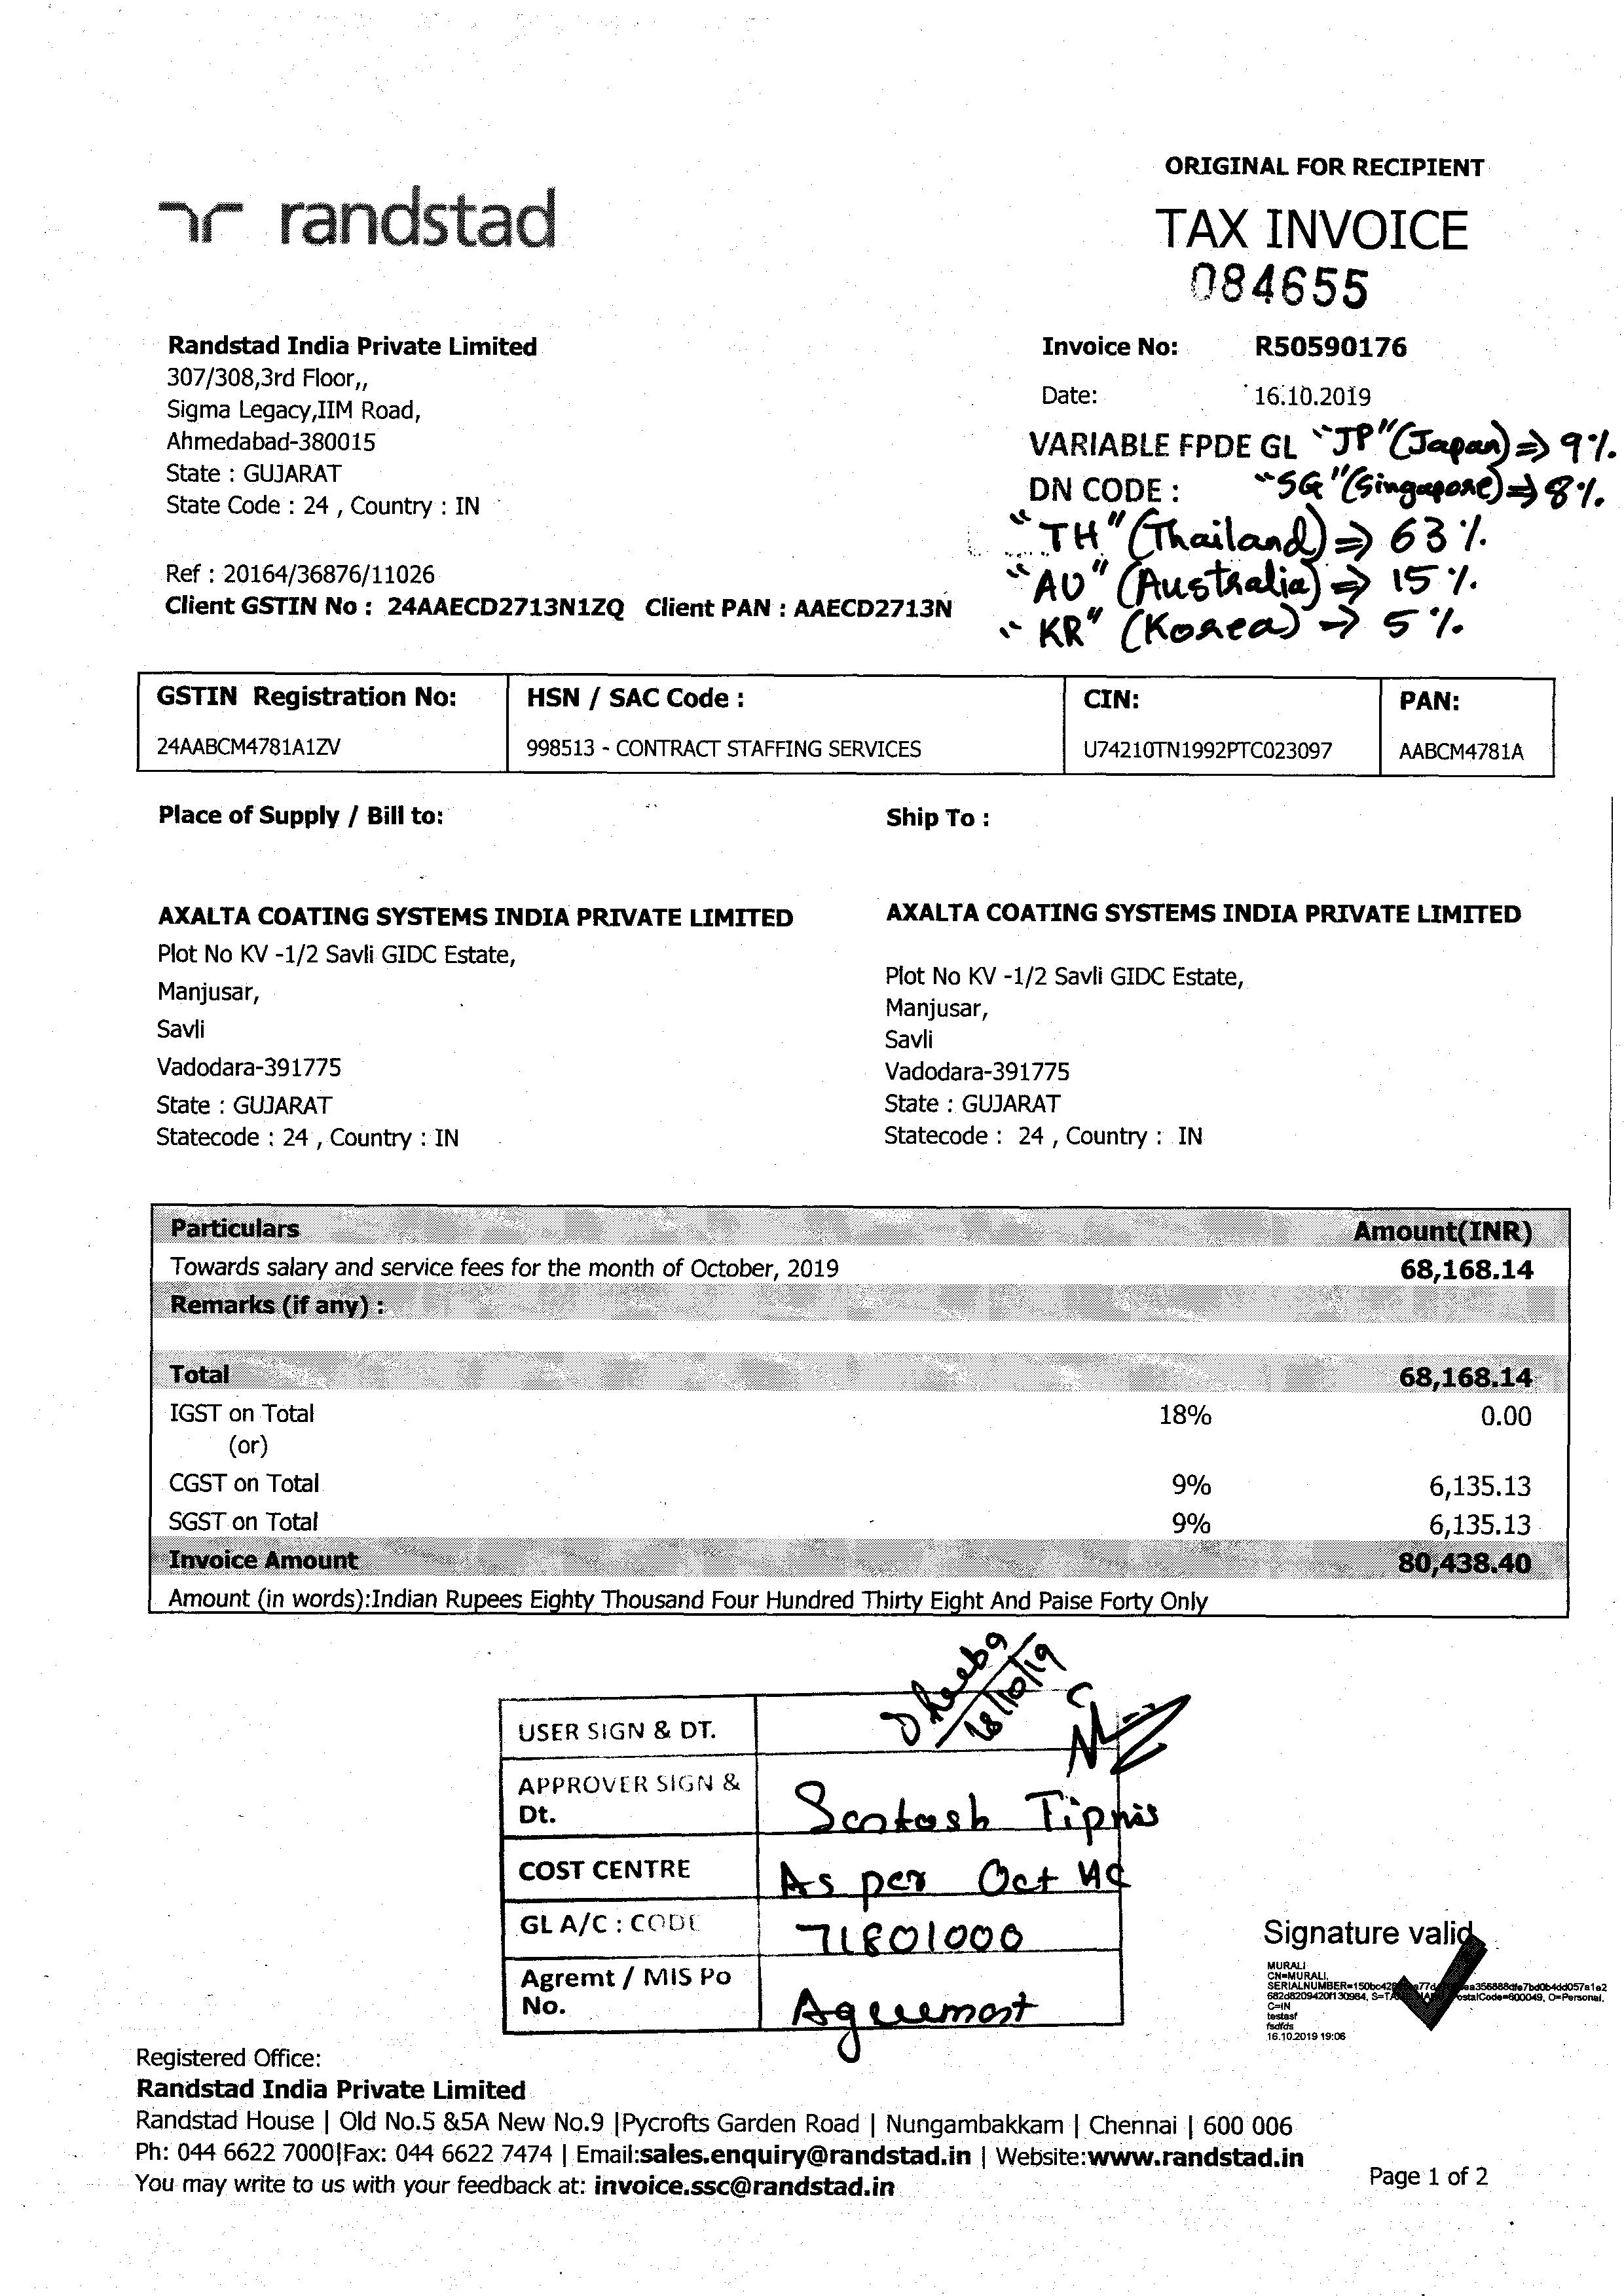 ORIGINAL FOR RECIPIENT
randstad
TAX INVOICE
084655
Randstad India Private Limited
307/308,3rd Floor,,
Sigma Legacy,IIM Road,
Ahmedabad-380015
State : GUJARAT
State Code : 24 , Country : IN
Invoice No: R50590176
Date: 16.10.2019
VARIABLE FPDE GL "JP" (Japan) => 9%.
DN CODE : "SG" (Singapore) => 8%.
"TH" (Thailand) => 63%.
"AU" (Australia) => 15%.
"KR" (Korea) -> 5%.
Ref : 20164/36876/11026
Client GSTIN No : 24AAECD2713N1ZQ Client PAN : AAECD2713N
GSTIN Registration No: HSN / SAC Code : CIN: PAN:
24AABCM4781A1ZV 998513 - CONTRACT STAFFING SERVICES U74210TN1992PTC023097 AABCM4781A
Place of Supply / Bill to:
AXALTA COATING SYSTEMS INDIA PRIVATE LIMITED
Plot No KV -1/2 Savli GIDC Estate,
Manjusar,
Savli
Vadodara-391775
State : GUJARAT
Statecode : 24 , Country : IN
Ship To :
AXALTA COATING SYSTEMS INDIA PRIVATE LIMITED
Plot No KV -1/2 Savli GIDC Estate,
Manjusar,
Savli
Vadodara-391775
State : GUJARAT
Statecode : 24 , Country : IN
Particulars Amount(INR)
Towards salary and service fees for the month of October, 2019 68,168.14
Remarks (if any) :
Total 68,168.14
IGST on Total 18% 0.00
(or)
CGST on Total 9% 6,135.13
SGST on Total 9% 6,135.13
Invoice Amount 80,438.40
Amount (in words):Indian Rupees Eighty Thousand Four Hundred Thirty Eight And Paise Forty Only
USER SIGN & DT. 18/10/19
APPROVER SIGN &
Dt. Santosh Tipnis
COST CENTRE As per Oct HC
GL A/C : CODE 71801000
Agremt / MIS Po
No. Agreement
Signature valid
MURALI
CN=MURALI,
C=IN
testasf
fsdfds
16.10.2019 19:06
Registered Office:
Randstad India Private Limited
Randstad House | Old No.5 &5A New No.9 |Pycrofts Garden Road | Nungambakkam | Chennai | 600 006
Ph: 044 6622 7000|Fax: 044 6622 7474 | Email:sales.enquiry@randstad.in | Website:www.randstad.in
You may write to us with your feedback at: invoice.ssc@randstad.in
Page 1 of 2